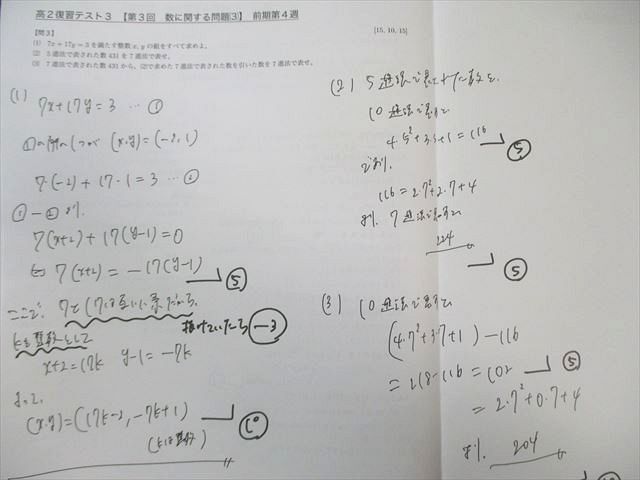 高2復習テスト3 【第3回 数に関する問題[3]】 前期第4週
[15, 10, 15]
【問3】
(1) 7x+17y=3 を満たす整数 x, y の組をすべて求めよ。
(2) 5 進法で表された数 431 を 7 進法で表せ。
(3) 7 進法で表された数 431 から、(2)で求めた 7 進法で表された数を引いた数を 7 進法で表せ。
(1)
7x+17y=3 … ①
①の解の1つが (x,y)=(-2,1)
7・(-2)+17・1=3 … ②
①-② より.
7(x+2)+17(y-1)=0
⇔ 7(x+2)=-17(y-1)
⑤
ここで、7と17は互いに素だから、
抜けていたら -3
kを整数として
x+2=17k y-1=-7k
よって.
(x,y)=(17k-2, -7k+1)
⑩
(kは整数)
(2) 5進法で表された数を
10進法で表すと
4・5²+3・5+1=116
⑤
であり.
116=2・7²+2・7+4
より. 7進法で表すと
224
⑤
(3) 10進法で表すと
(4・7²+3・7+1)-116
=218-116=102
⑤
=2・7²+0・7+4
より. 204